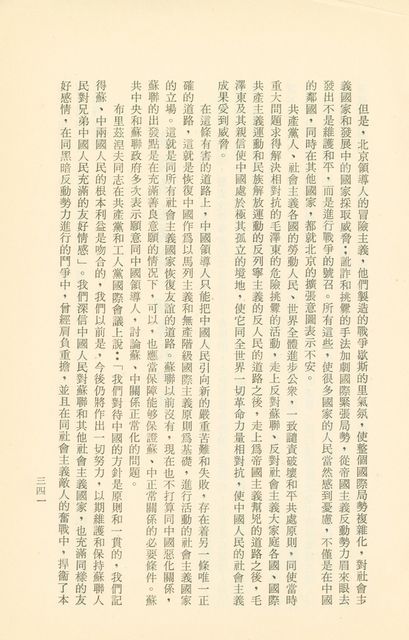 但是,北京領導人的冒險主義,他們製造的戰爭歇斯的里氣氛,使整個國際局勢複雜化,對社會主
義國家和發展中的國家採取威脅、訛詐和挑釁的手法加劇國際緊張局勢,從帝國主義反動勢力眉來眼去
發出不是維護和平,而是進行戰爭的號召。所有這些,使很多國家的人民當然感到憂慮,不僅是在中國
的鄰國,同時在其他國家,都就北京的擴張意圖表示不安。
共產黨人、社會主義各國的勞動人民、世界全體進步公衆,一致譴責破壞和平共處原則,同使當時
重大問題求得解決相對抗的毛澤東的危險挑釁的活動,走上反對蘇聯、反對社會主義大家庭各國、國際
共產主義運動和民族解放運動的反列寧主義的反人民的道路之後,走上爲帝國主義幫兇的道路之後,毛
澤東及其親信使中國處於極其孤立的境地,使它同全世界一切革命力量相對抗,使中國人民的社會主義
成果受到威脅。
在這條有害的道路上,中國領導人只能把中國人民引向新的嚴重苦難和失敗,存在着另一條唯一正
確的道路,這就是恢復中國作爲以馬列主義和無產階級國際主義原則爲基礎,進行活動的社會主義國家
的立場。這就是同所有社會主義國家恢復友誼的道路。蘇聯以前沒有,現在也不打算同中國惡化關係,
蘇聯的出發點是在充滿善良意願的情況下,可以,也應當保障能够保證蘇、中正常關係的必要條件。蘇
共中央和蘇聯政府多次表示願意同中國領導人,討論蘇、中關係正常化的問題。
布里茲涅夫同志在共產黨和工人黨國際會議上說:「我們對待中國的方針是原則和一貫的,我們記
得蘇、中兩國人民的根本利益是吻合的,我們以前是,今後仍將作出一切努力,以期維護和保持蘇聯人
民對兄弟中國人民充滿的友好情感」。我們深信中國人民對蘇聯和其他社會主義國家,也充滿同樣的友
好感情,在同黑暗反動勢力進行的鬥爭中,曾經肩負重擔,並且在同社會主義敵人的奮戰中,捍衞了本
三四一